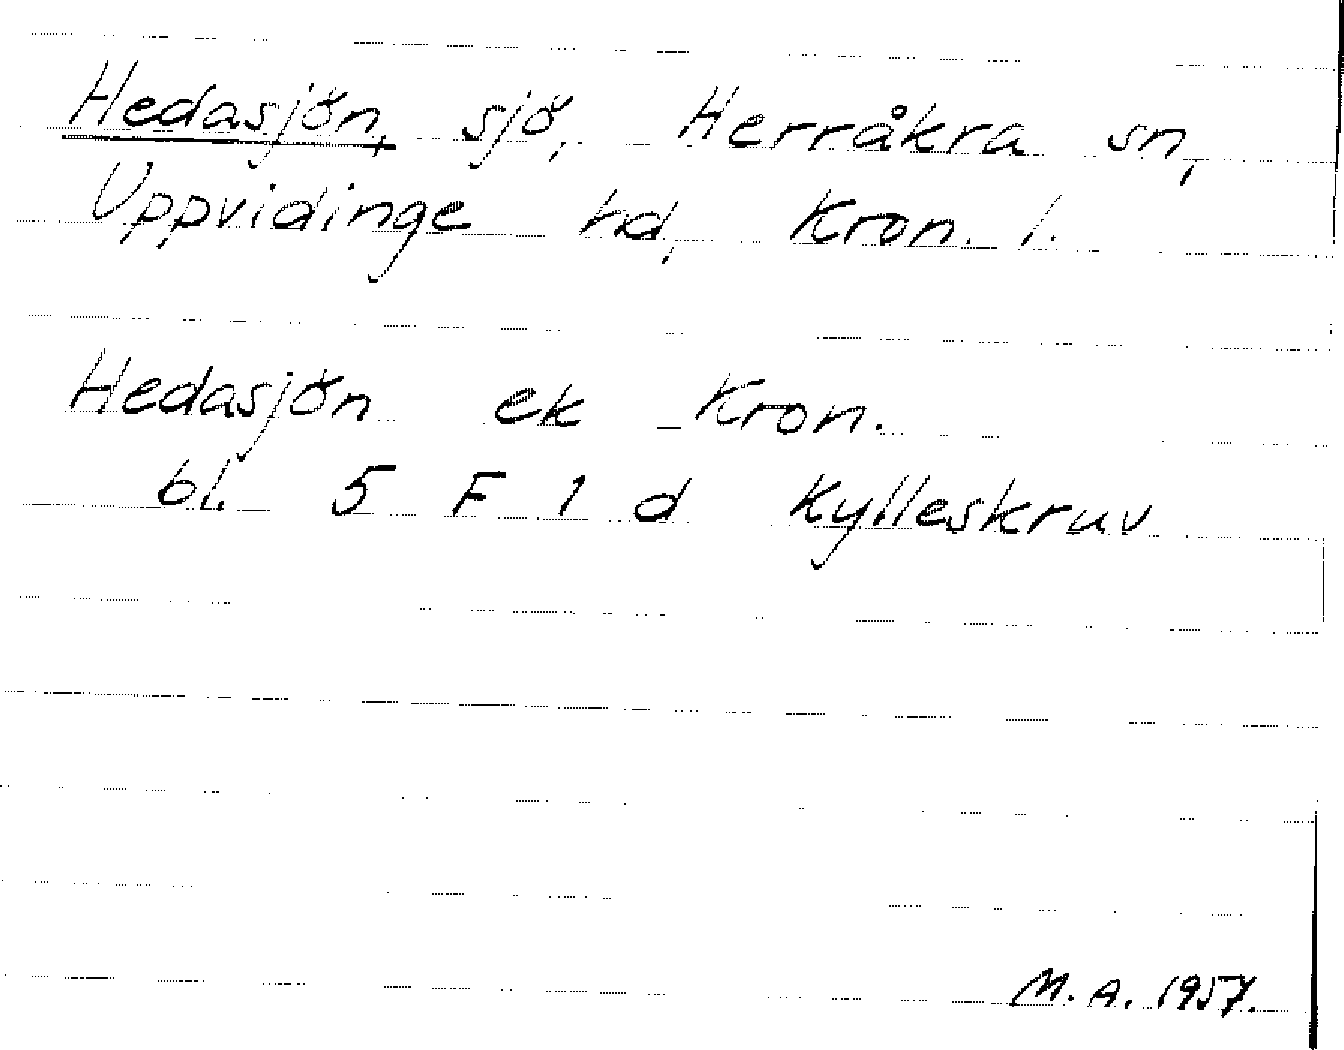 Hedasjön, sjö, Herråkra sn,
Uppvidinge hd, Kron. l.
Hedasjön ek Kron.
bl. 5 F 1 d Kylleskruv
M. A. 1957.